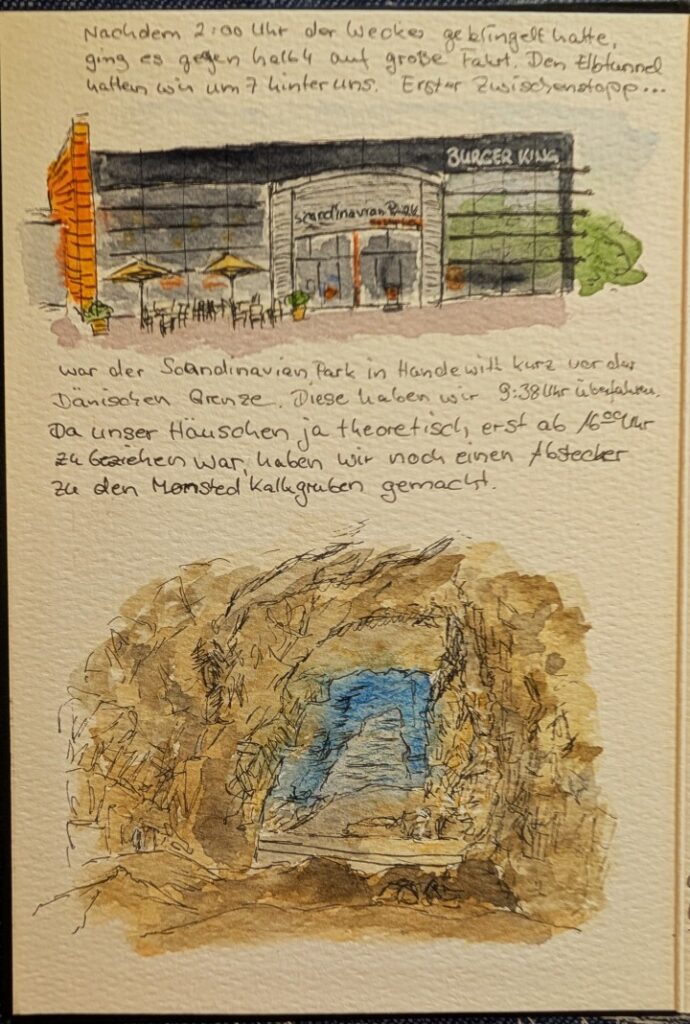 Nachdem 2:00 Uhr der Wecker geklingelt hatte,
ging es gegen halb 4 auf große Fahrt. Den Elbtunnel
hatten wir um 7 hinter uns. Erster Zwischenstopp...
BURGER KING
Scandinavian Park
war der Scandinavian Park in Handewitt kurz vor der
Dänischen Grenze. Diese haben wir 9:38 Uhr überfahren.
Da unser Häuschen ja theoretisch erst ab 16:00 Uhr
zu beziehen war, haben wir noch einen Abstecher
zu den Monsted Kalkgruben gemacht.